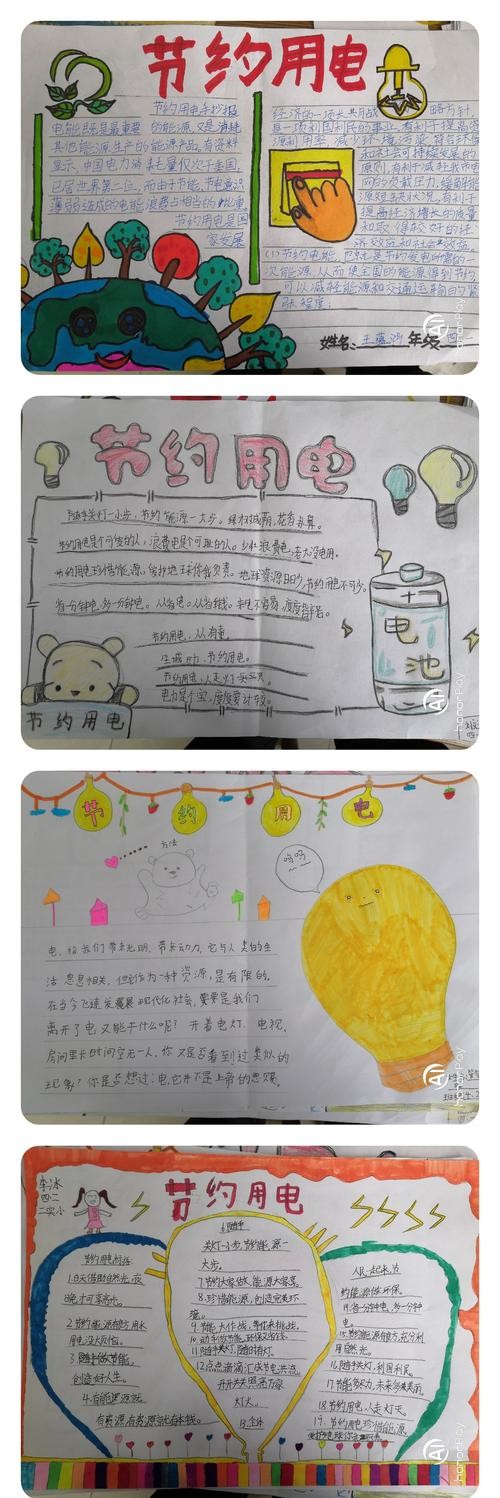 节约用电
节约用电手抄报
电能既是最重要的能源,又是消耗
其他能源生产的能源产品,有资料
显示,中国电力消耗量仅次于美国
已居世界第二位,而由于节能、节电意识
薄弱造成的电能浪费占相当的比重
节约用电是国
家发展
经济的一项长期战略方针,
是一项利国利民的事业,有利于提高资
源利用率,减少环境污染,符合环保
和社会可持续发展的
原则,有利于减轻我市电
网的负载压力,缓解能
源短缺状况,有利于
提高经济增长的质量
和取得较好的经
济效益和社会效益
(1)节约电能,也就是节约发电所需的一
次能源,从而使全国的能源得到节约
可以减轻能源和交通运输的紧
张程度;
姓名: 年级
节约用电
随手关灯一小步,节约能源一大步。
节约用电是个可爱的人,浪费电是个可耻的人。
省一分钟电,多一分钟电。
节约用电,从有重
节约用电,人走灯灭
电力是个宝,度度要计较。
节约用电
电池
节约用电
方法
呜呜
电,给我们带来光明,带来动力,它与人类的生
活息息相关,但它作为一种资源,是有限的。
在当今飞速发展现代化社会,要是我们
离开了电又能干什么呢?开着电灯、电视,
房间里长时间空无一人,你又是否看到过类似的
现象?你是否想过:电,它并不是上帝的恩赐。
李冰
四.二
二实小
节约用电
节约用电标语
1.白天借助自然光,夜
晚才可享亮光。
2.节约能源有方,用水
用电没烦恼。
3.随手做节能,
创造好人生。
关灯一小步,节约能源一
大步。
7.节约大家做,能源大家享。
8.珍惜能源,创造完美环
境。
9.节能大作战,等你来挑战。
10.动手做节能,环保又省钱。
11.随手关灯,随时省灯。
12.点点滴滴汇成节电洪流,
开开关关照亮万家
灯火。
人民一起来为
约能源做环保。
14.省一分钟电,多一分钟
电。
15.节约能源有方,充分利
用自然光。
16.随手关灯,利国利民。
17.节能努力,未来多美丽。
18.节约用电,人走灯灭。
19.节约用电,珍惜能源,
HonorPlay